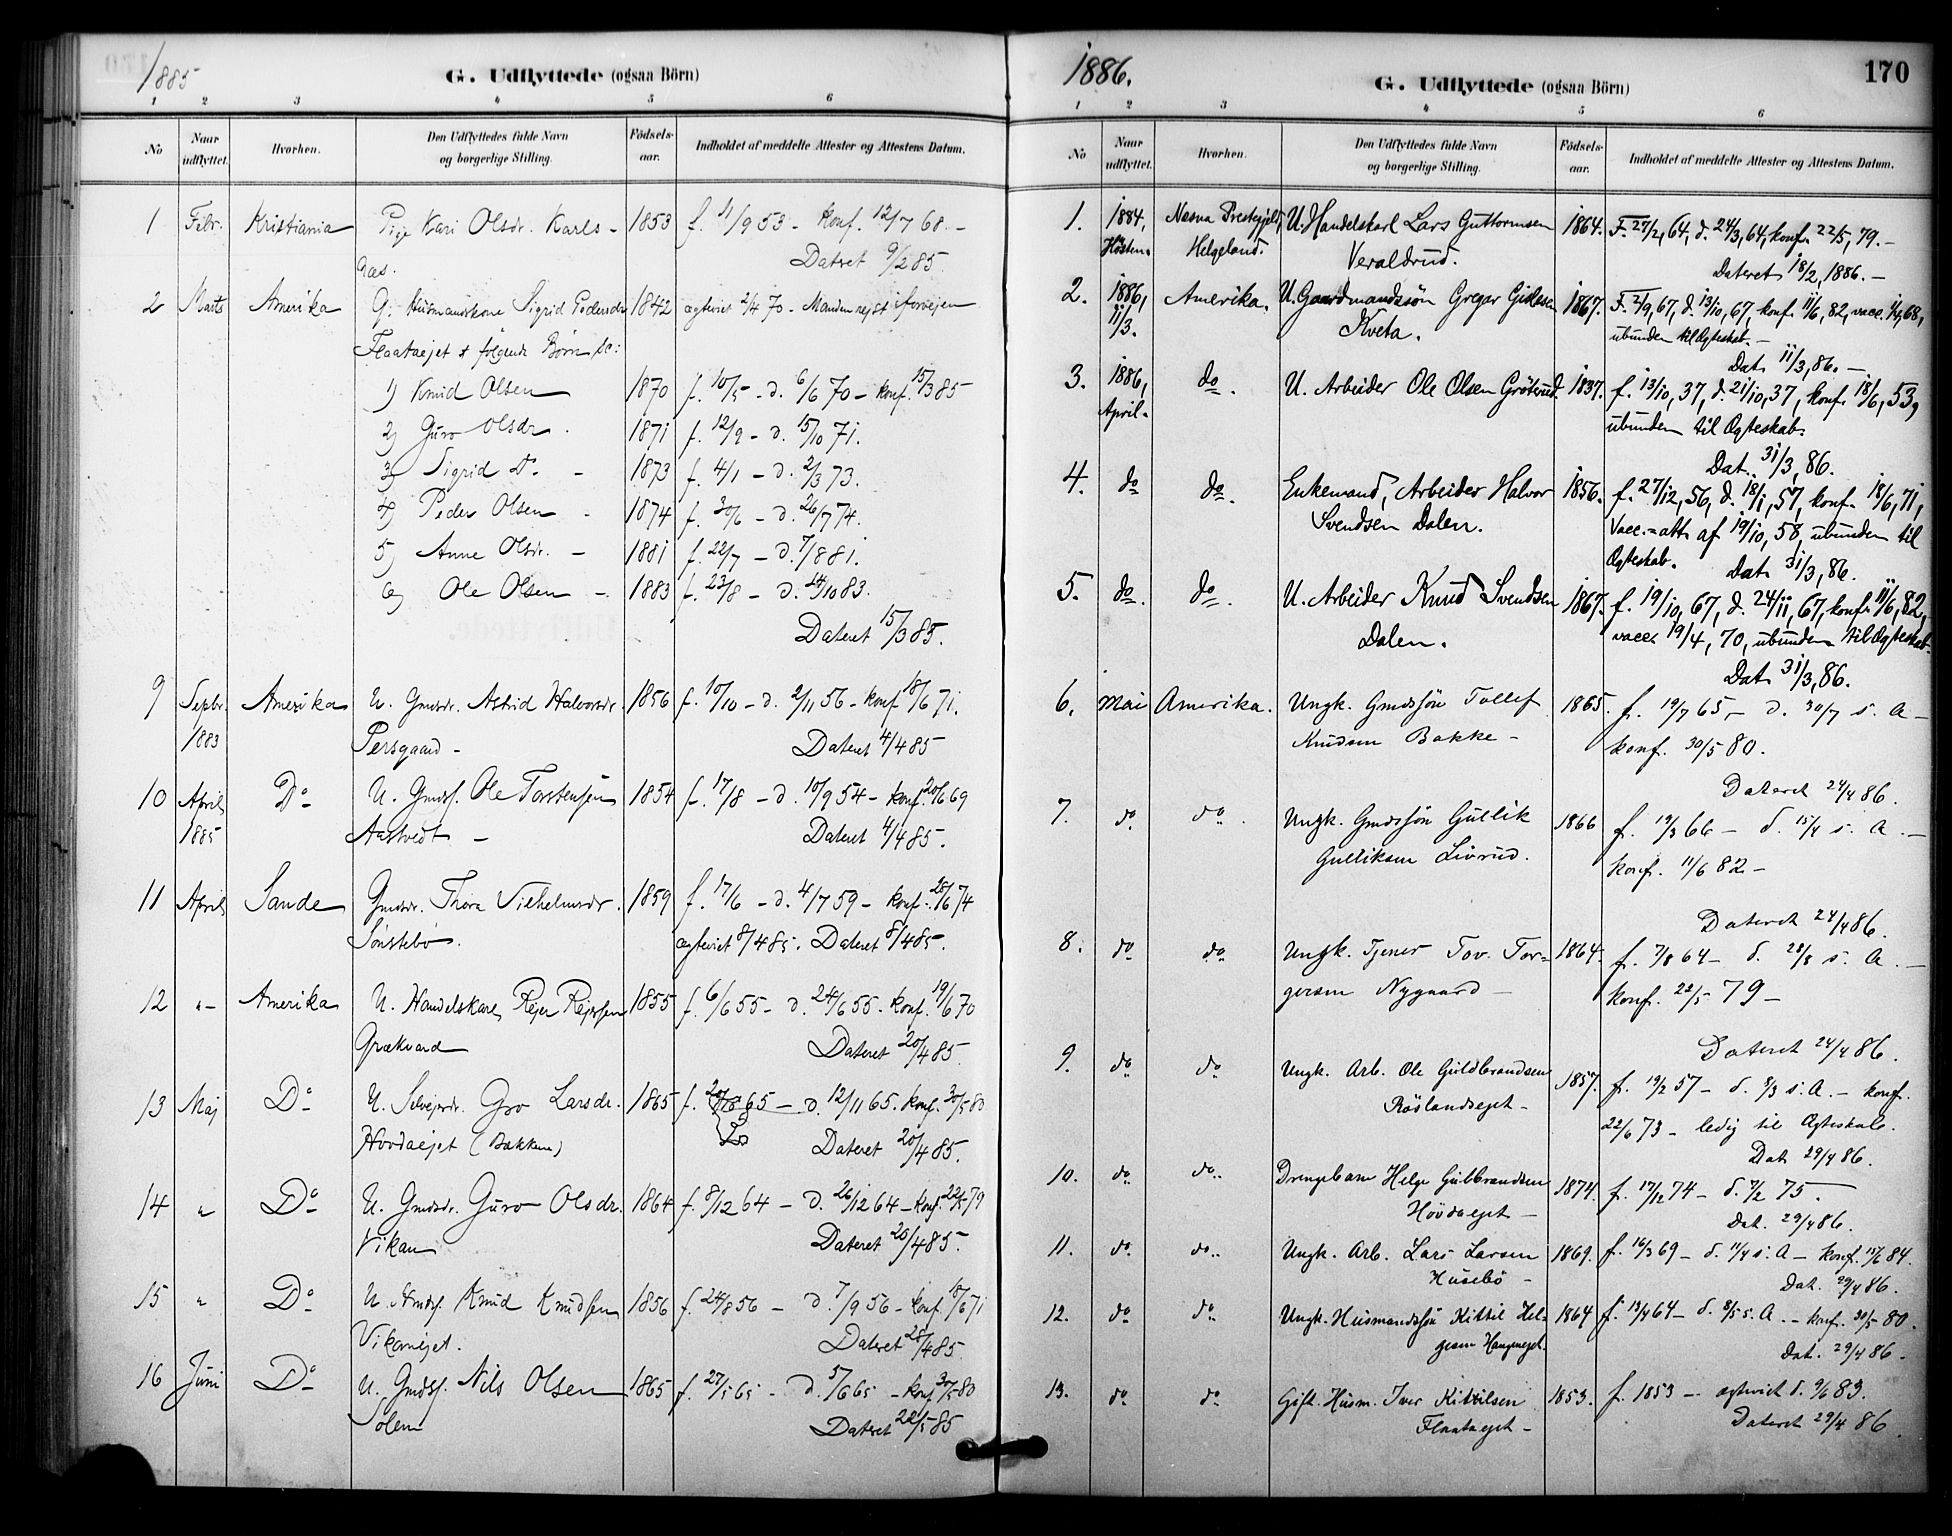 1885
G. Udflyttede (ogsaa Börn)
1 2 3 4 5 6
No
Naar udflyttet.
Hvorhen.
Den Udflyttedes fulde Navn og borgerlige Stilling.
Födsels-aar.
Indholdet af meddelte Attester og Attestens Datum.
1 Febr. Kristiania Pige Kari Olsdr. Karls- 1853 f. 11/9 53 - konf. 12/7 68. -
Dateret 9/2 85.
2 Marts Amerika G. Husmandskone Sigrid Pedersdr 1842 ægteviet 2/4 70 - Manden rejst i forvejen
Flaataejet & følgende Børn sc:
1) Knud Olsen 1870 f. 10/5 - d. 6/6 70 - konf. 15/3 85
2) Guro Olsdr. 1871 f. 12/9 - d. 15/10 71.
3) Sigrid Do - 1873 f. 4/1 - d. 2/3 73.
4) Peder Olsen - 1874 f. 30/6 - d. 26/7 74.
5) Anne Olsdr. - 1881 f. 22/7 - d. 7/8 81.
6) Ole Olsen - 1883 f. 23/8 - d. 14/10 83.
Dateret 15/3 85.
9 Septbr. Amerika U. Gmdsdr. Astrid Halvorsdr. 1856 f. 10/10 - d. 2/11 56 - konf 18/6 71.
1883 Persgaard - Dateret 4/4 85
10 April Do U. Gmdsf. Ole Torstensen 1854 f. 17/8 - d. 10/9 54 - konf. 20/6 69
1885 Aastvedt - Dateret 4/4 85.
11 April Sande Gmdsdr. Thora Vilhelmsdr. 1859 f. 17/6 - d. 4/7 59 - konf. 28/6 74
Sönstebö. ægteviet 8/4 85. Dateret 8/4 85.
12 "- Amerika U. Handelskarl Rejer Rejersen 1855 f. 6/6 55 - d. 24/6 55 - konf. 19/6 70
Grækvard Dateret 20/4 85.
13 Maj Do U. Selvejerdr. Gro Larsdr. 1865 f. 20/10 65 - d. 12/11 65. konf. 30/5 80
Hovdaejet (Bakken) Dateret 20/4 85.
14 " Do U. Gmdsdr. Guro Olsdr. 1864 f. 8/12 64 - d. 26/12 64 - konf. 22/5 79
Vikan Dateret 20/4 85.
15 " Do U. Hmdsf. Knud Knudsen 1856 f. 24/8 56 - d. 7/9 56 - konf. 18/6 71
Vikanejet. Dateret 28/4 85.
16 Juni Do U. Gmdsf. Nils Olsen 1865 f. 27/5 65 - d. 5/6 65 - konf. 30/5 80
Solem Dateret 22/5 85
1886.
G. Udflyttede (ogsaa Börn)
170
1 2 3 4 5 6
No
Naar udflyttet.
Hvorhen.
Den Udflyttedes fulde Navn og borgerlige Stilling.
Födsels-aar.
Indholdet af meddelte Attester og Attestens Datum.
1. 1884, Næsna Prestegjeld, U. Handelskarl Lars Guttormsen 1864. F. 27/2, 64, d. 24/3, 64, konf. 22/5, 79. -
Høsten. Helgeland. Veraldrud. Dateret 18/2, 1886. -
2. 1886, Amerika. U. Gaardmandssön Gregar Gislesen 1867. F. 2/9, 67, d. 13/10, 67, konf. 11/6, 82, vacc. 1/4, 68,
11/3. Kveta. ubunden til Ægteskab. -
Dat. 11/3, 86. -
3. 1886, do. U. Arbeider Ole Olsen Gröterud. 1837. f. 13/10, 37, d. 21/10, 37, konf. 18/6, 53,
April. ubunden til Ægteskab.
Dat. 31/3, 86.
4. do do. Enkemand, Arbeider Halvor 1856. f. 27/12, 56, d. 18/1, 57, konf. 18/6, 71,
Svendsen Dalen. Vacc.-att. af 19/10, 58, ubunden til
Ægteskab. Dat. 31/3, 86.
5. do. do. U. Arbeider Knud Svendsen 1867. f. 19/10, 67, d. 24/11, 67, konf. 11/6, 82,
Dalen. vacc. 19/4, 70, ubunden til Ægteskab
Dat. 31/3, 86.
6. Mai Amerika. Ungk. Gmdssön Tollef 1865. f. 19/7 65, - d. 30/7 s. A -
Knudsen Bakke - konf. 30/5 80.
Dateret 24/4 86.
7. do. do. Ungk. Gmdssön Gullik 1866 f. 19/3 66 - d. 15/4 s. A. -
Gulliksen Livrud. konf. 11/6 82 -
Dateret 24/4 86.
8. do do Ungk. Tjener Tov Tor- 1864. f. 7/8 64 - d. 28/8 s. A. -
gersen Nygaard - konf. 22/5 79 -
Dateret 24/4 86.
9. do do Ungk. Arb. Ole Guldbrandsen 1857. f. 19/2 57 - d. 8/3 s. A. - konf.
Röslandseyet - 22/6 73 - ledig til Ægteskab.
Dat. 29/4 86.
10. do. do. Drengebarn Helge Gulbrandsen 1874. f. 17/12 74 - d. 7/2 75.
Hövdaeyet - Dat. 29/4 86.
11. do. do. Ungk. Arb. Lars Larsen 1869. f. 16/3 69 - d. 11/4 s. A - konf. 15/6 84.
Husebö - Dat. 29/4 86.
12. do do Ungk. Husmandssön Kittil Hel- 1864 f. 13/4 64 - d. 8/5 s. A. - konf. 30/5 80.
gesen Dat. 29/4 86.
13. do do Gift. Husm. Iver Kittilsen 1853. f. 1853 - ægteviet d. 9/6 83.
Flaataeyet - Dateret 29/4 86.